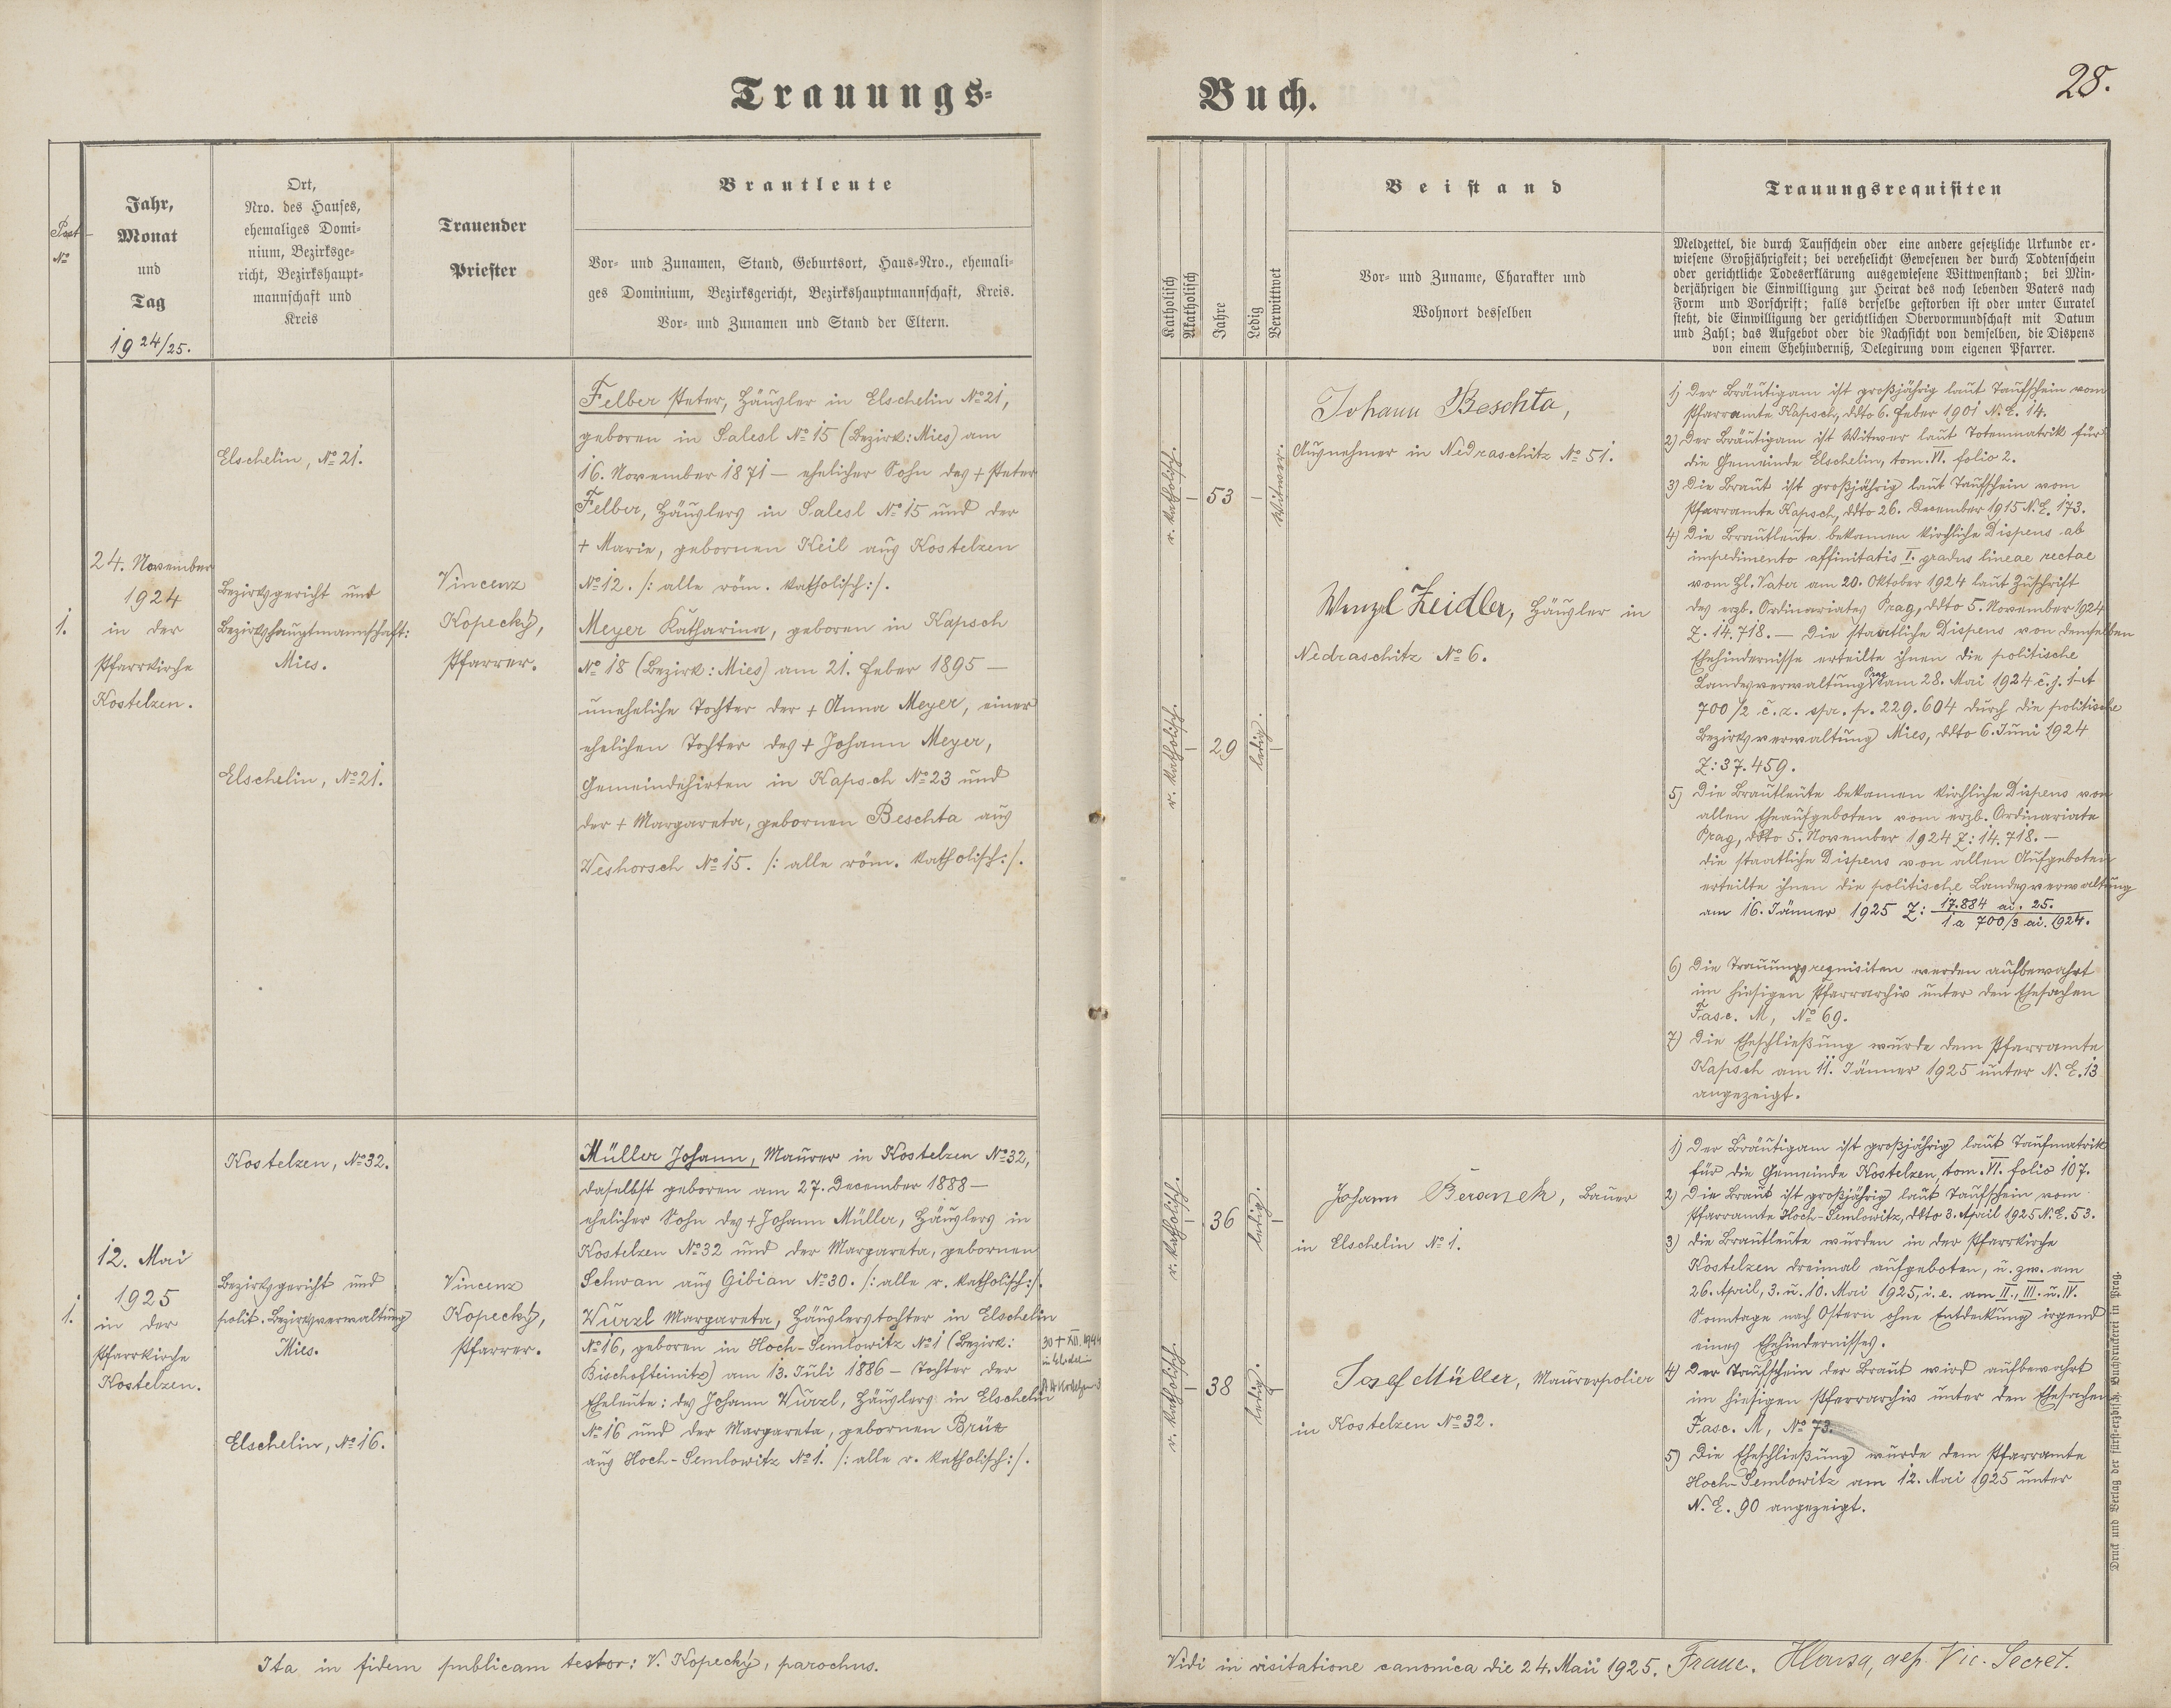 Trauungs-
Buch.
28.
Post
No
Jahr,
Monat
und
Tag
1924/25.
Ort,
Nro. des Hauses,
ehemaliges Domi-
nium, Bezirksge-
richt, Bezirkshaupt-
mannschaft und
Kreis
Trauender
Priester
Brautleute
Vor- und Zunamen, Stand, Geburtsort, Haus-Nro., ehemali-
ges Dominium, Bezirksgericht, Bezirkshauptmannschaft, Kreis.
Vor- und Zunamen und Stand der Eltern.
Katholisch
Akatholisch
Jahre
Ledig
Verwittwet
Beistand
Vor- und Zuname, Charakter und
Wohnort desselben
Trauungsrequisiten
Meldzettel, die durch Taufschein oder eine andere gesetzliche Urkunde er-
wiesene Großjährigkeit; bei verehelicht Gewesenen der durch Todtenschein
oder gerichtliche Todeserklärung ausgewiesene Wittwenstand; bei Min-
derjährigen die Einwilligung zur Heirat des noch lebenden Vaters nach
Form und Vorschrift; falls derselbe gestorben ist oder unter Curatel
steht, die Einwilligung der gerichtlichen Obervormundschaft mit Datum
und Zahl; das Aufgebot oder die Nachsicht von demselben, die Dispens
von einem Ehehinderniß, Delegirung vom eigenen Pfarrer.
1.
24. November
1924
in der
Pfarrkirche
Kostelzen.
Elschelin, No 21.
Bezirksgericht und
Bezirkshauptmannschaft:
Mies.
Elschelin, No 21.
Vincenz
Kopecký,
Pfarrer.
Felber Peter, Häusler in Elschelin No 21,
geboren in Salesl No 15 (Bezirk: Mies) am
16. November 1871 — ehelicher Sohn des + Peter
Felber, Häuslers in Salesl No 15 und der
+ Marie, gebornen Keil aus Kostelzen
No 12. /: alle röm. katholisch :/.
Meyer Katharina, geboren in Kapsch
No 18 (Bezirk: Mies) am 21. Feber 1895 —
uneheliche Tochter der + Anna Meyer, einer
ehelichen Tochter des + Johann Meyer,
Gemeindehirten in Kapsch No 23 und
der + Margareta, gebornen Beschta aus
Weshorsch No 15. /: alle röm. katholisch :/.
r. katholisch.
53
Witwer.
r. katholisch.
29
ledig.
Johann Beschta,
Ausnehmer in Nedraschitz No 51.
Wenzel Zeidler, Häusler in
Nedraschitz No 6.
1) Der Bräutigam ist großjährig laut Taufschein vom
Pfarramte Kapsch, ddto 6. Feber 1901 N. E. 14.
2) Der Bräutigam ist Witwer laut Totenmatrik für
die Gemeinde Elschelin, tom. VI. folio 2.
3) Die Braut ist großjährig laut Taufschein vom
Pfarramte Kapsch, ddto 26. December 1915 N. E. 173.
4) Die Brautleute bekamen kirchliche Dispens ab
impedimento affinitatis I. gradus lineae rectae
vom Hl. Vater am 20. Oktober 1924 laut Zuschrift
des erzb. Ordinariates Prag, ddto 5. November 1924
Z. 14.718. — Die staatliche Dispens von demselben
Ehehindernisse erteilte ihnen die politische
Landesverwaltung Prag am 28. Mai 1924 č. j. 1-A
700/2 č. z. spr. p. 229.604 durch die politische
Bezirksverwaltung Mies, ddto 6. Juni 1924
Z: 37.459.
5) Die Brautleute bekamen kirchliche Dispens von
allen Eheaufgeboten vom erzb. Ordinariate
Prag, ddto 5. November 1924 Z: 14.718. —
die staatliche Dispens von allen Aufgeboten
erteilte ihnen die politische Landesverwaltung
am 16. Jänner 1925 Z: 17.884 ai. 25.
1a 700/3 ai. 1924.
6) Die Trauungsrequisiten werden aufbewahrt
im hiesigen Pfarrarchiv unter den Ehesachen
Fasc. M, No 69.
7) Die Eheschließung wurde dem Pfarramte
Kapsch am 11. Jänner 1925 unter N. E. 13
angezeigt.
1.
12. Mai
1925
in der
Pfarrkirche
Kostelzen.
Kostelzen, No 32.
Bezirksgericht und
polit. Bezirksverwaltung
Mies.
Elschelin, No 16.
Vincenz
Kopecký,
Pfarrer.
Müller Johann, Maurer in Kostelzen No 32,
daselbst geboren am 27. December 1888 —
ehelicher Sohn des + Johann Müller, Häuslers in
Kostelzen No 32 und der Margareta, gebornen
Schwan aus Gibian No 30. /: alle r. katholisch :/.
Würzl Margareta, Häuslerstochter in Elschelin
No 16, geboren in Hoch-Semlowitz No 1 (Bezirk:
Bischofteinitz) am 13. Juli 1886 — Tochter der
Eheleute: des Johann Würzl, Häuslers in Elschelin
No 16 und der Margareta, gebornen Brüx
aus Hoch-Semlowitz No 1. /: alle r. katholisch :/.
30 + XII. 1944
r. katholisch.
36
ledig.
r. katholisch.
38
ledig.
Johann Beranek, Bauer
in Elschelin No 1.
Josef Müller, Maurerpolier
in Kostelzen No 32.
1) Der Bräutigam ist großjährig laut Taufmatrik
für die Gemeinde Kostelzen, tom. VI. folio 107.
2) Die Braut ist großjährig laut Taufschein vom
Pfarramte Hoch-Semlowitz, ddto 3. April 1925 N. E. 53.
3) die Brautleute wurden in der Pfarrkirche
Kostelzen dreimal aufgeboten, u. zw. am
26. April, 3. u. 10. Mai 1925, i. e. am II., III. u. IV.
Sonntage nach Ostern ohne Entdeckung irgend
eines Ehehindernisses.
4) Der Taufschein der Braut wird aufbewahrt
im hiesigen Pfarrarchiv unter den Ehesachen
Fasc. M, No 73.
5) Die Eheschließung wurde dem Pfarramte
Hoch-Semlowitz am 12. Mai 1925 unter
N. E. 90 angezeigt.
Druck und Verlag der fürst-erzbisch. Buchdruckerei in Prag.
Ita in fidem publicam testor: V. Kopecký, parochus.
Vidi in visitatione canonica die 24. Maii 1925. Vic. Secret.